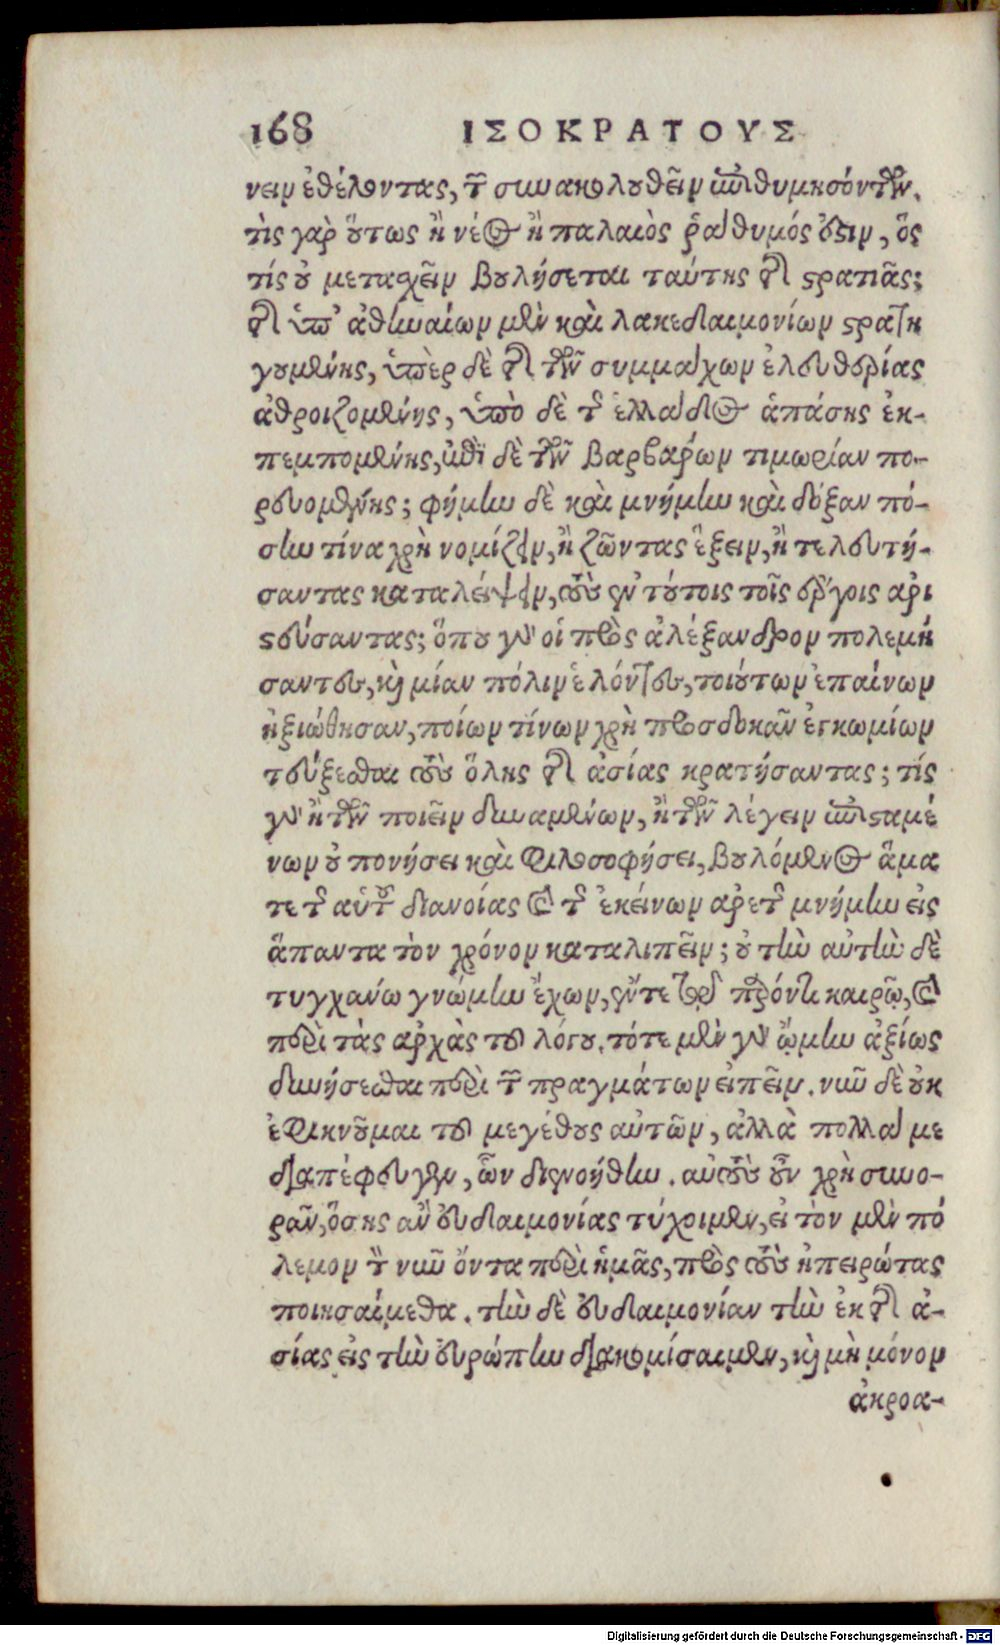 168 ΙΣΟΚΡΑΤΟΥΣ
νειν ἐθέλοντας, τῶν συνακολουθεῖν ἐπιθυμησόντων.
τίς γὰρ οὕτως ἢ νέος ἢ παλαιὸς ῥάθυμός ἐστιν, ὅς
τίς οὐ μετασχεῖν βουλήσεται ταύτης τῆς στρατιᾶς;
τῆς ὑπ’ ἀθηναίων μὲν καὶ λακεδαιμονίων στρατη
γουμένης, ὑπὲρ δὲ τῆς τῶν συμμάχων ἐλευθερίας
ἀθροιζομένης, ὑπὸ δὲ τῆς ἑλλάδος ἁπάσης ἐκ-
πεμπομένης, ἐπὶ δὲ τῶν βαρβάρων τιμωρίαν πο-
ρευομένης; φήμην δὲ καὶ μνήμην καὶ δόξαν πό-
σην τίνα χρὴ νομίζειν, ἢ ζῶντας ἕξειν, ἢ τελευτή-
σαντας καταλείψειν, τοὺς ἐν τούτοις τοῖς ἔργοις ἀρι
στεύσαντας; ὅπου γὰρ οἱ πρὸς ἀλέξανδρον πολεμή
σαντες, καὶ μίαν πόλιν ἑλόντες, τοιούτων ἐπαίνων
ἠξιώθησαν, ποίων τίνων χρὴ προσδοκᾶν ἐγκωμίων
τεύξεσθαι τοὺς ὅλης τῆς ἀσίας κρατήσαντας; τίς
γὰρ ἢ τῶν ποιεῖν δυναμένων, ἢ τῶν λέγειν ἐπισταμέ
νων οὐ πονήσει καὶ φιλοσοφήσει, βουλόμενος ἅμα
τε τῆς αὑτοῦ διανοίας καὶ τῆς ἐκείνων ἀρετῆς μνήμην εἰς
ἅπαντα τὸν χρόνον καταλιπεῖν; οὐ τὴν αὐτὴν δὲ
τυγχάνω γνώμην ἔχων, ἔν τε τῷ παρόντι καιρῷ, καὶ
περὶ τὰς ἀρχὰς τοῦ λόγου. τότε μὲν γὰρ ᾤμην ἀξίως
δυνήσεσθαι περὶ τῶν πραγμάτων εἰπεῖν. νῦν δὲ οὐκ
ἐφικνοῦμαι τοῦ μεγέθους αὐτῶν, ἀλλὰ πολλά με
διαπέφευγεν, ὧν διενοήθην. αὐτοὺς οὖν χρὴ συνο-
ρᾶν, ὅσης ἂν εὐδαιμονίας τύχοιμεν, εἰ τὸν μὲν πό
λεμον τὸν νῦν ὄντα περὶ ἡμᾶς, πρὸς τοὺς ἠπειρώτας
ποιησαίμεθα. τὴν δὲ εὐδαιμονίαν τὴν ἐκ τῆς ἀ-
σίας εἰς τὴν εὐρώπην διακομίσαιμεν, καὶ μὴ μόνον
ἀκροα-
Digitalisierung gefördert durch die Deutsche Forschungsgemeinschaft - DFG